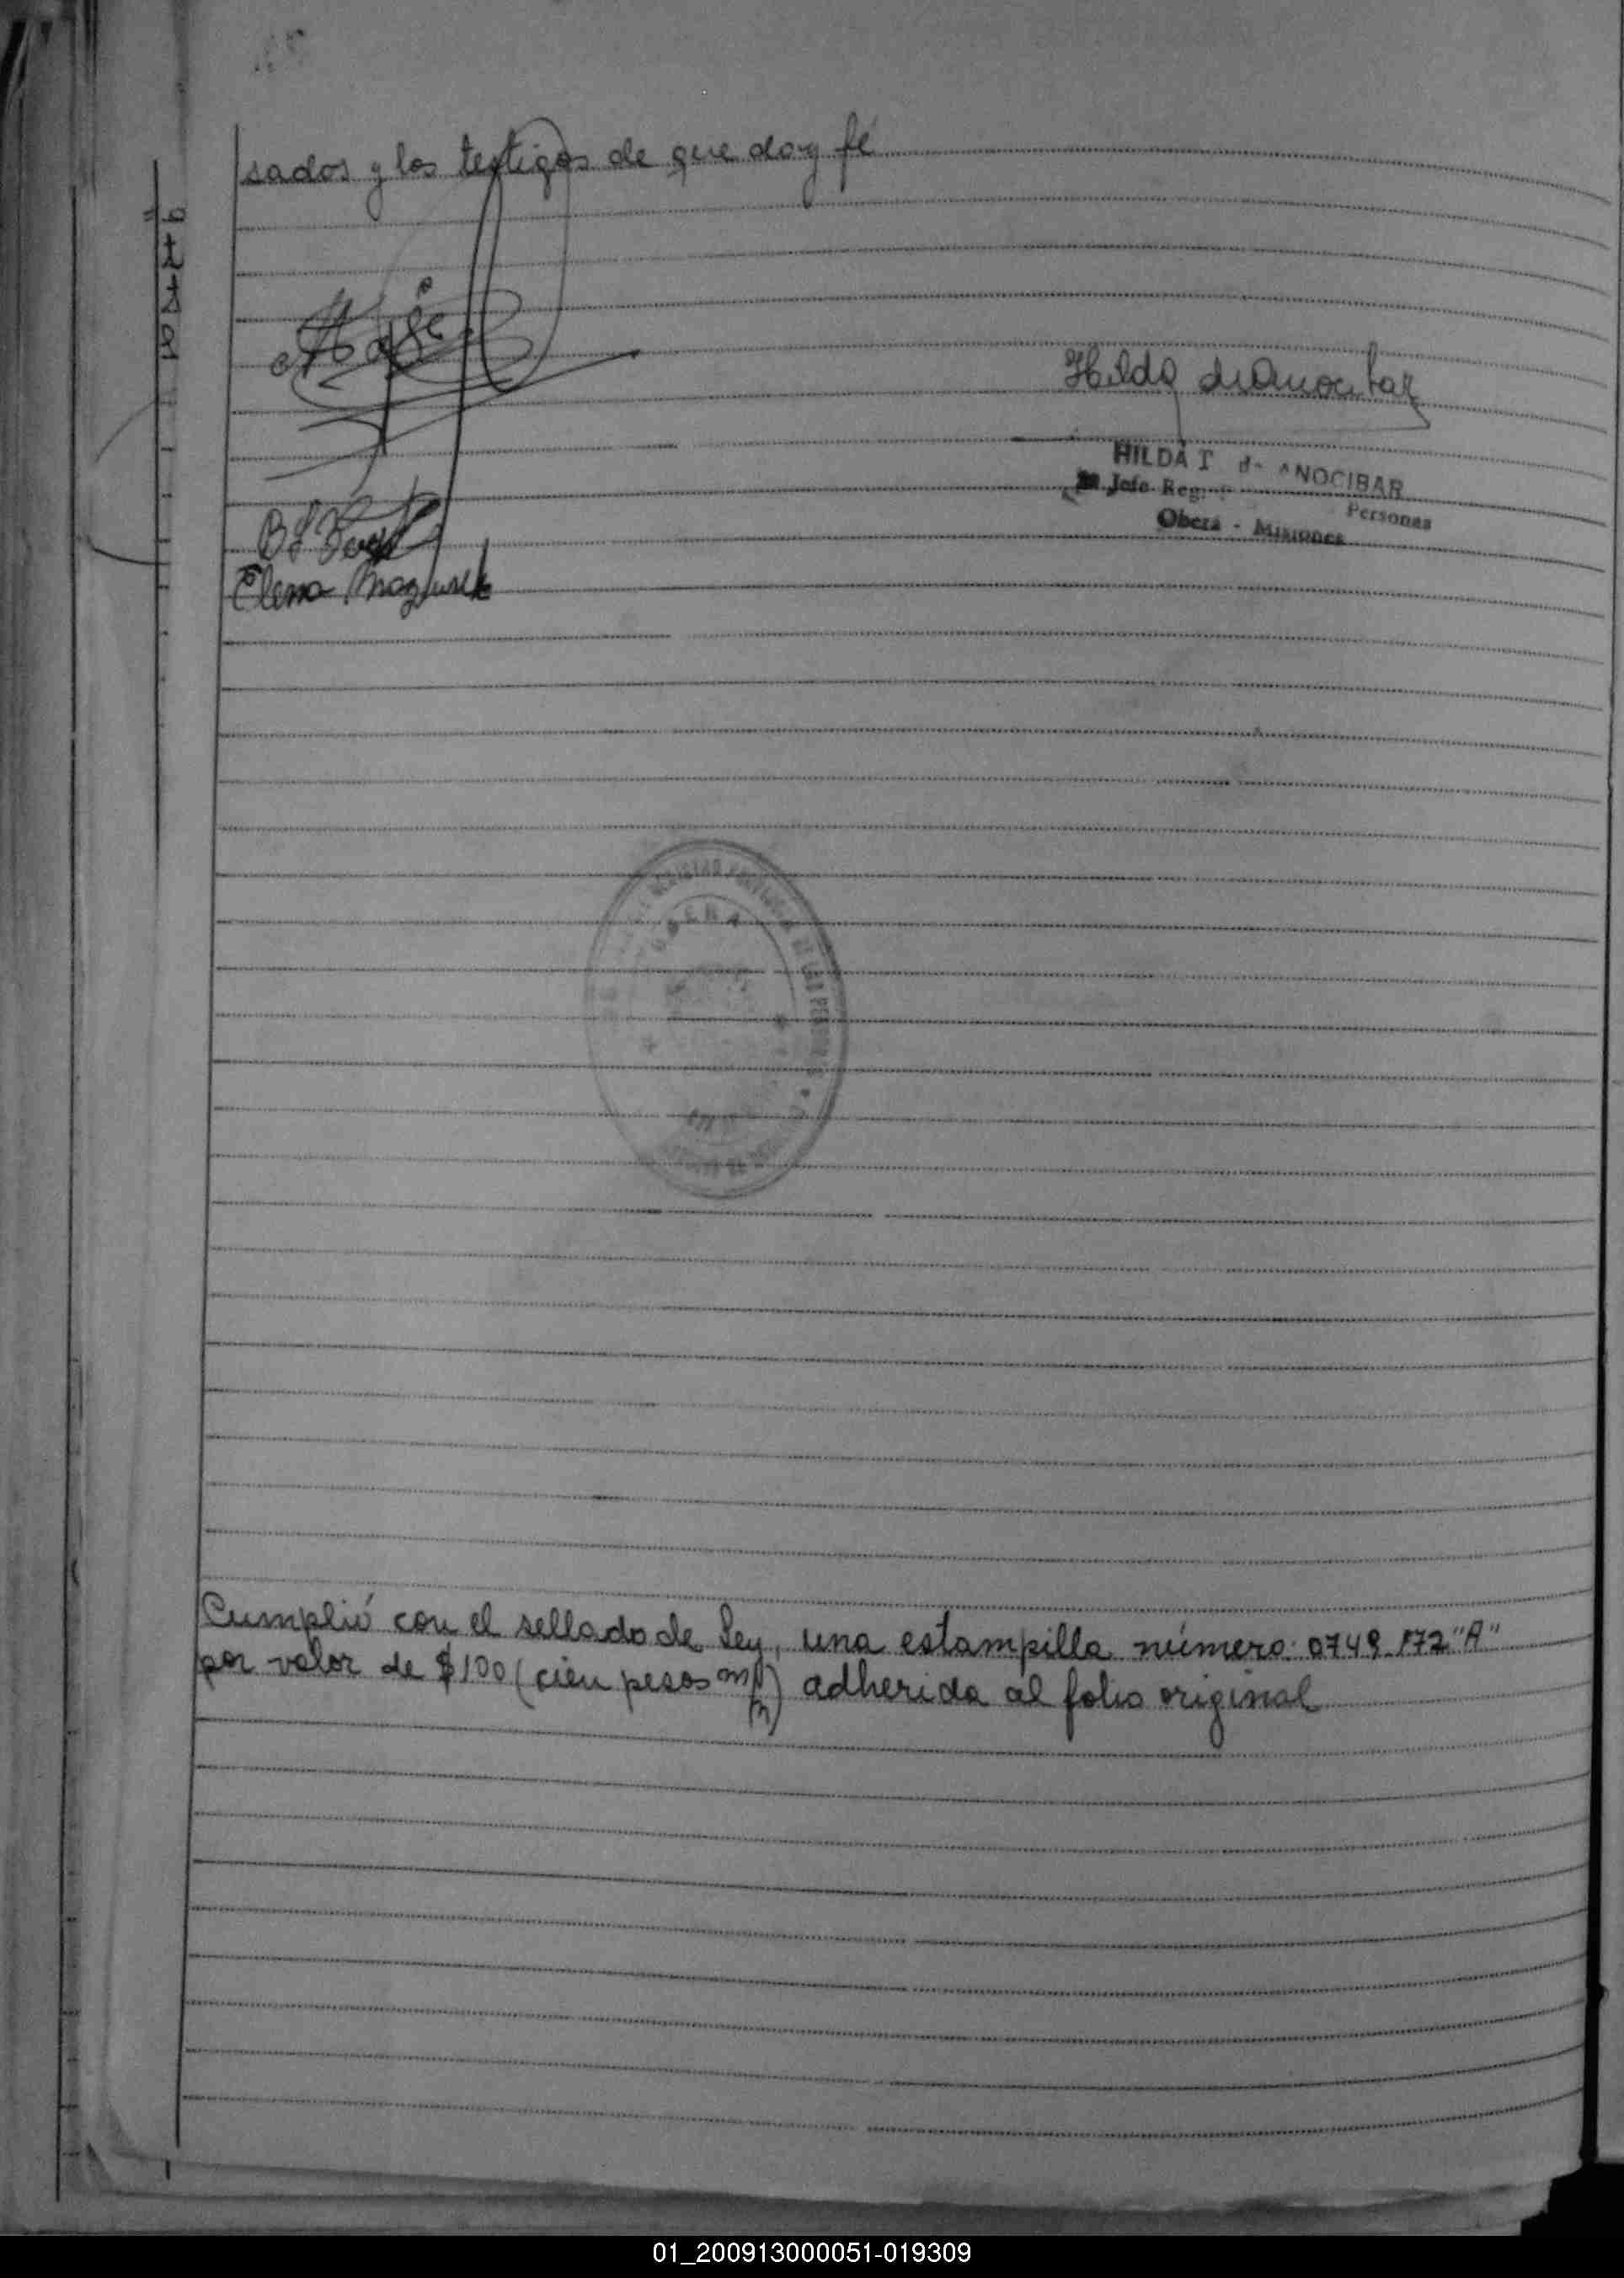 sados y los testigos de que doy fé
Hilda de Anocibar
HILDA T de ANOCIBAR
Jefe Reg. Personas
Oberá - Misiones
Elena Mazurek
OBERA
DE LAS PERSONAS
Cumplió con el sellado de Ley, una estampilla número: 0749172 "A"
por valor de $100 (cien pesos m/n) adherida al folio original
01_200913000051-019309